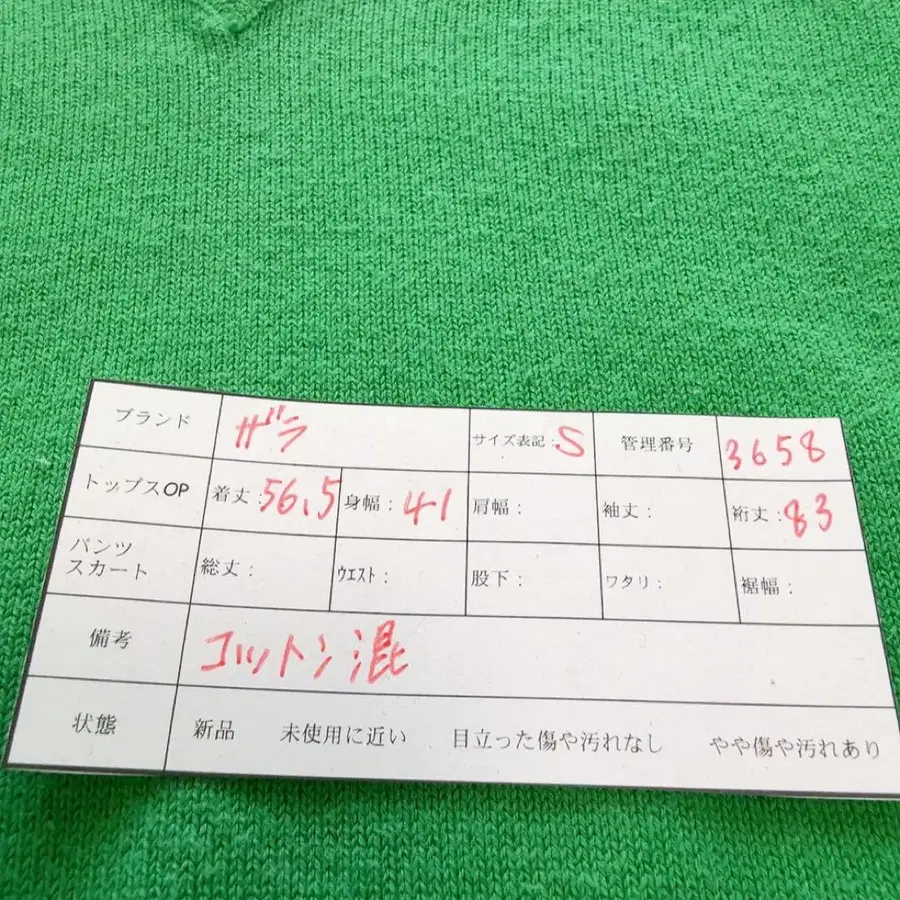 ブランド ザラ サイズ表記：S 管理番号 3658
トップスOP 着丈：56.5 身幅：41 肩幅： 袖丈： 裄丈：83
パンツ
スカート 総丈： ウエスト： 股下： ワタリ： 裾幅：
備考 コットン混
状態 新品 未使用に近い 目立った傷や汚れなし やや傷や汚れあり